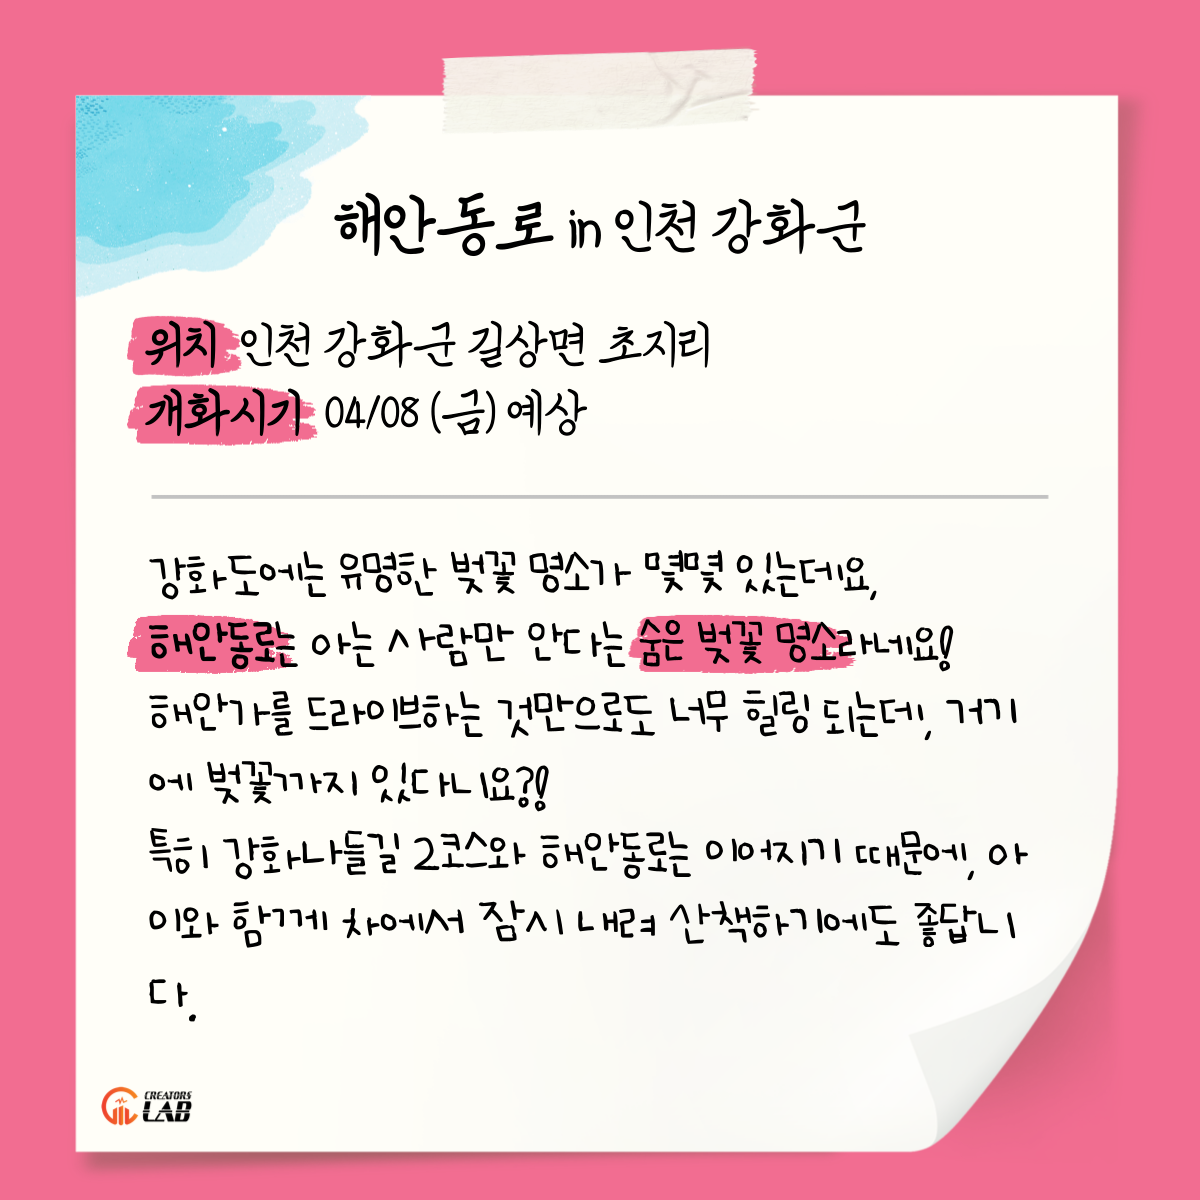 해안동로 in 인천 강화군
위치 인천 강화군 길상면 초지리
개화시기 04/08 (금) 예상
강화도에는 유명한 벚꽃 명소가 몇몇 있는데요,
해안동로는 아는 사람만 안다는 숨은 벚꽃 명소라네요!
해안가를 드라이브하는 것만으로도 너무 힐링 되는데, 거기
에 벚꽃까지 있다니요?!
특히 강화나들길 2코스와 해안동로는 이어지기 때문에, 아
이와 함께 차에서 잠시 내려 산책하기에도 좋답니
다.
CREATORS
LAB